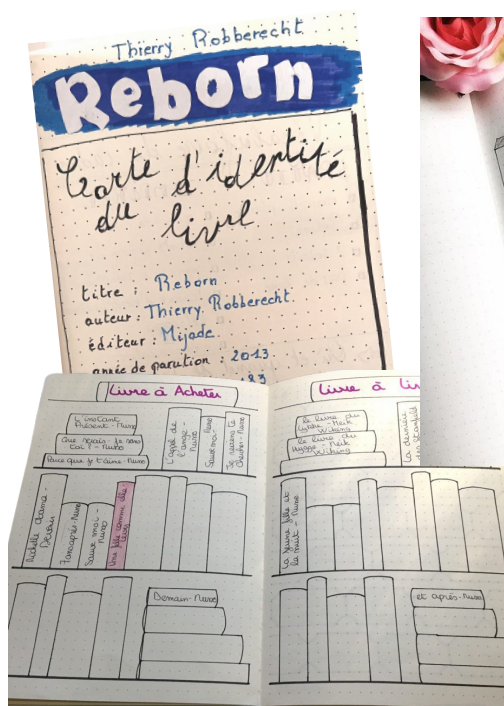 Thierry Robberecht
Reborn
Carte d'identité
du livre
titre : Reborn
auteur : Thierry Robberecht
éditeur : Mijade
année de parution : 2013
83
Livre à Acheter
L'instant
Présent - Musso
Que serais-je sans
toi ? - Musso
Parce que je t'aime - Musso
L'appel de
l'ange -
Musso
Sauve moi - Musso
Je reviens te
chercher - Musso
7 ans après - Musso
Sauve moi -
Musso
Une fille comme elle
Levy
Demain - Musso
Livre à Li
Le livre du
Lykke - Meik
Wiking
Le livre du
Hygge - Meik
Wiking
La dernière
La jeune fille et
la nuit - Musso
et après - Musso